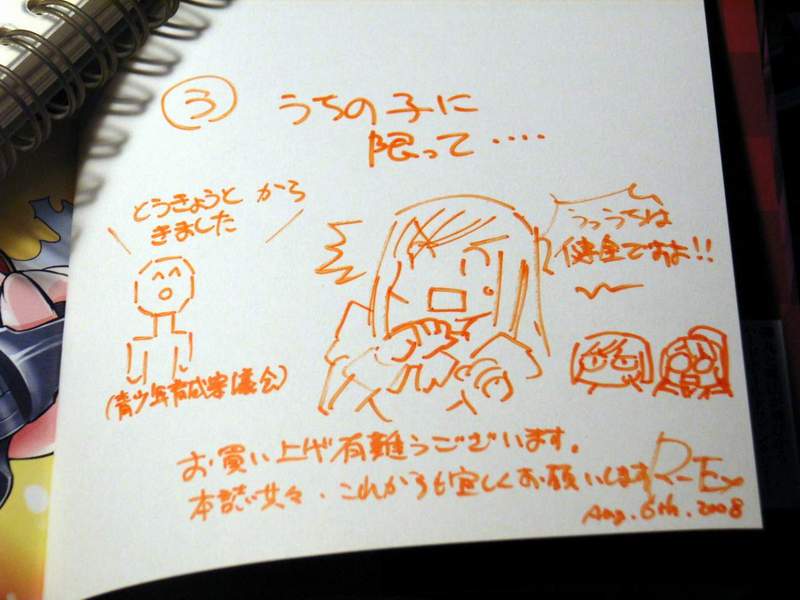 ③ うちの子に
限って‥‥
とうきょうと から
きました
うっうちは
健全ですよ!!
(青少年育成審議会)
お買い上げ有難うございます。
本誌共々、これからも宜しくお願いします
Aug. 6th. 2008